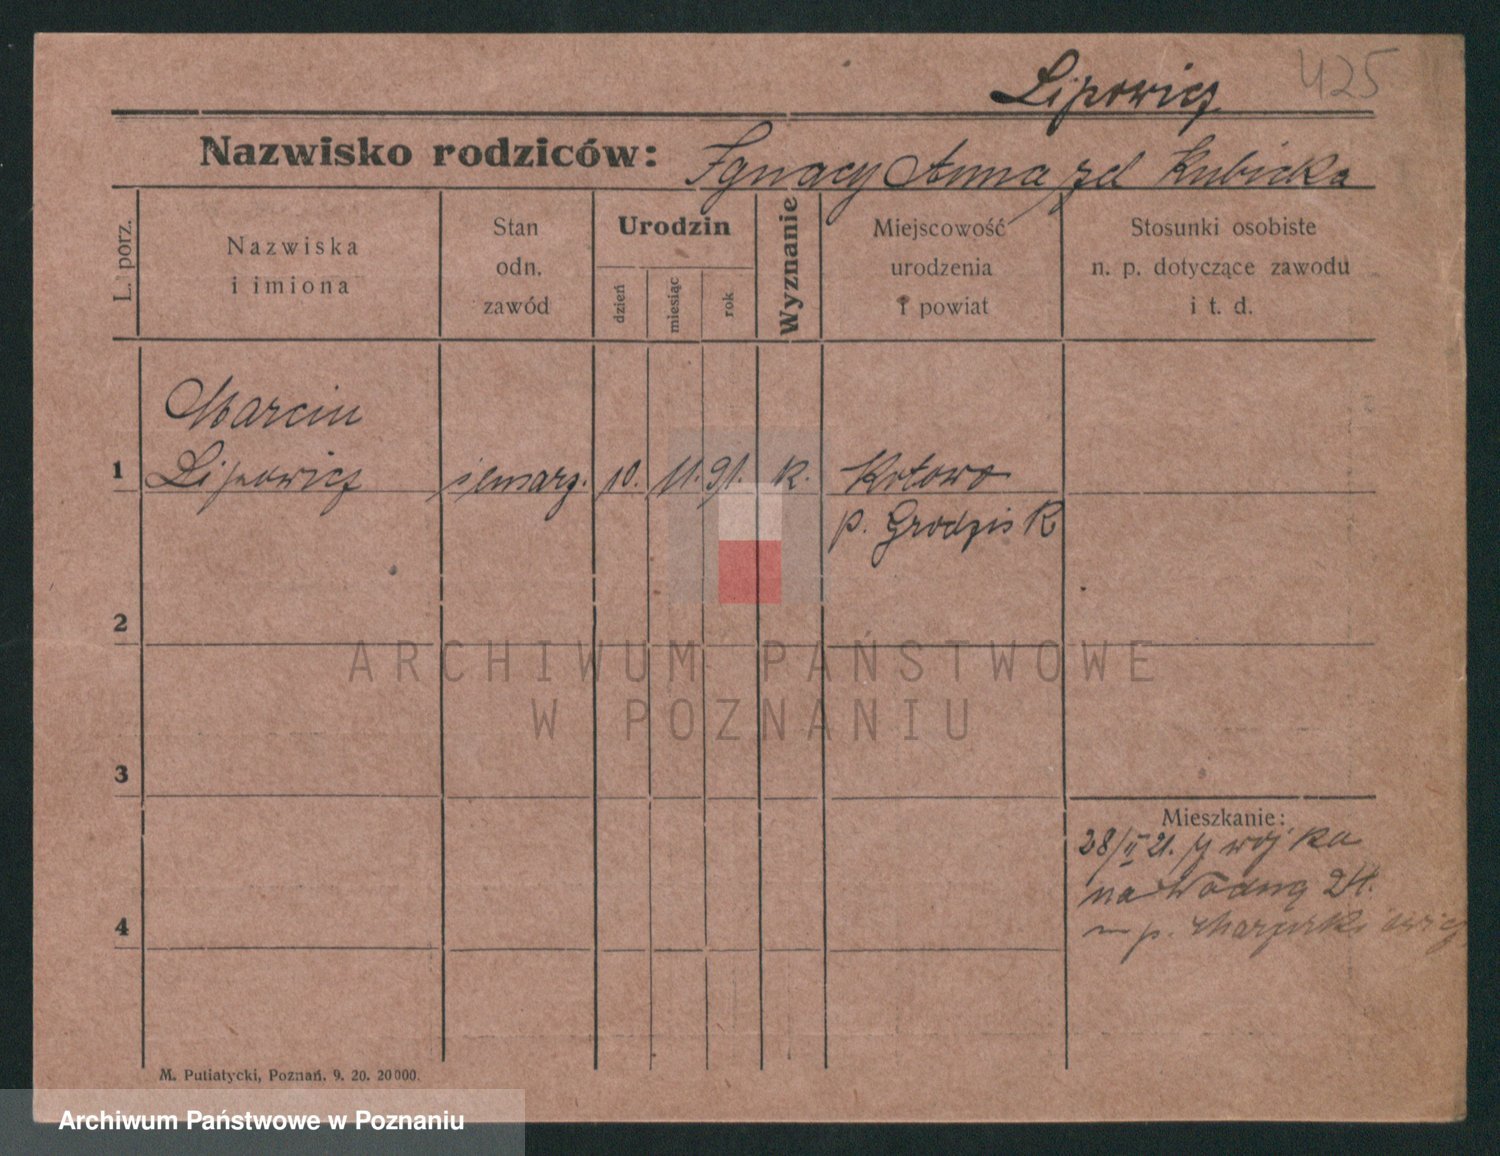 Lipowicz 425
Nazwisko rodziców: Ignacy Anna zd Kubicka
L. porz.
Nazwiska
i imiona
Stan
odn.
zawód
Urodzin
dzień
miesiąc
rok
Wyznanie
Miejscowość
urodzenia
i powiat
Stosunki osobiste
n. p. dotyczące zawodu
i t. d.
Marcin
1 Lipowicz 10. 11. 91. k. Kotowo
p. Grodzisk
2
3
4
Mieszkanie:
28/II 21. z wojska
na Wodną 24.
p.
ARCHIWUM PAŃSTWOWE
W POZNANIU
M. Putiatycki, Poznań. 9. 20. 20000.
Archiwum Państwowe w Poznaniu